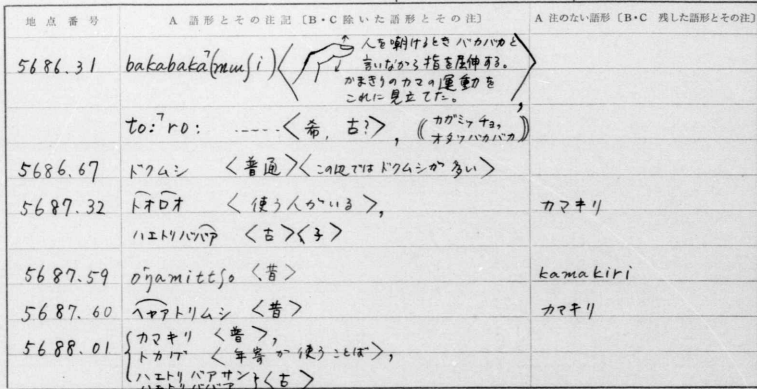 地点番号 A 語形とその注記〔B・C 除いた語形とその注〕 A 注のない語形〔B・C 残した語形とその注〕
5686.31 bakabaka(mɯʃi) 〈人を嘲けるとき バカバカと
言いながら指を屈伸する。
かまきりのカマの運動を
これに見立てた。〉,
to:ro: ……〈希, 古?〉, (( カガミッチョ,
オタツバカバカ ))
5686.67 ドクムシ 〈普通〉〈この辺ではドクムシが多い〉
5687.32 トオロオ 〈使う人がいる〉, カマキリ
ハエトリババア 〈古〉〈子〉
5687.59 oŋamittʃo 〈昔〉 kamakiri
5687.60 ヘァトリムシ 〈昔〉 カマキリ
5688.01 カマキリ 〈普〉,
トカゲ 〈年寄が使うことば〉,
ハエトリバアサン
ハエトリババア 〈古〉